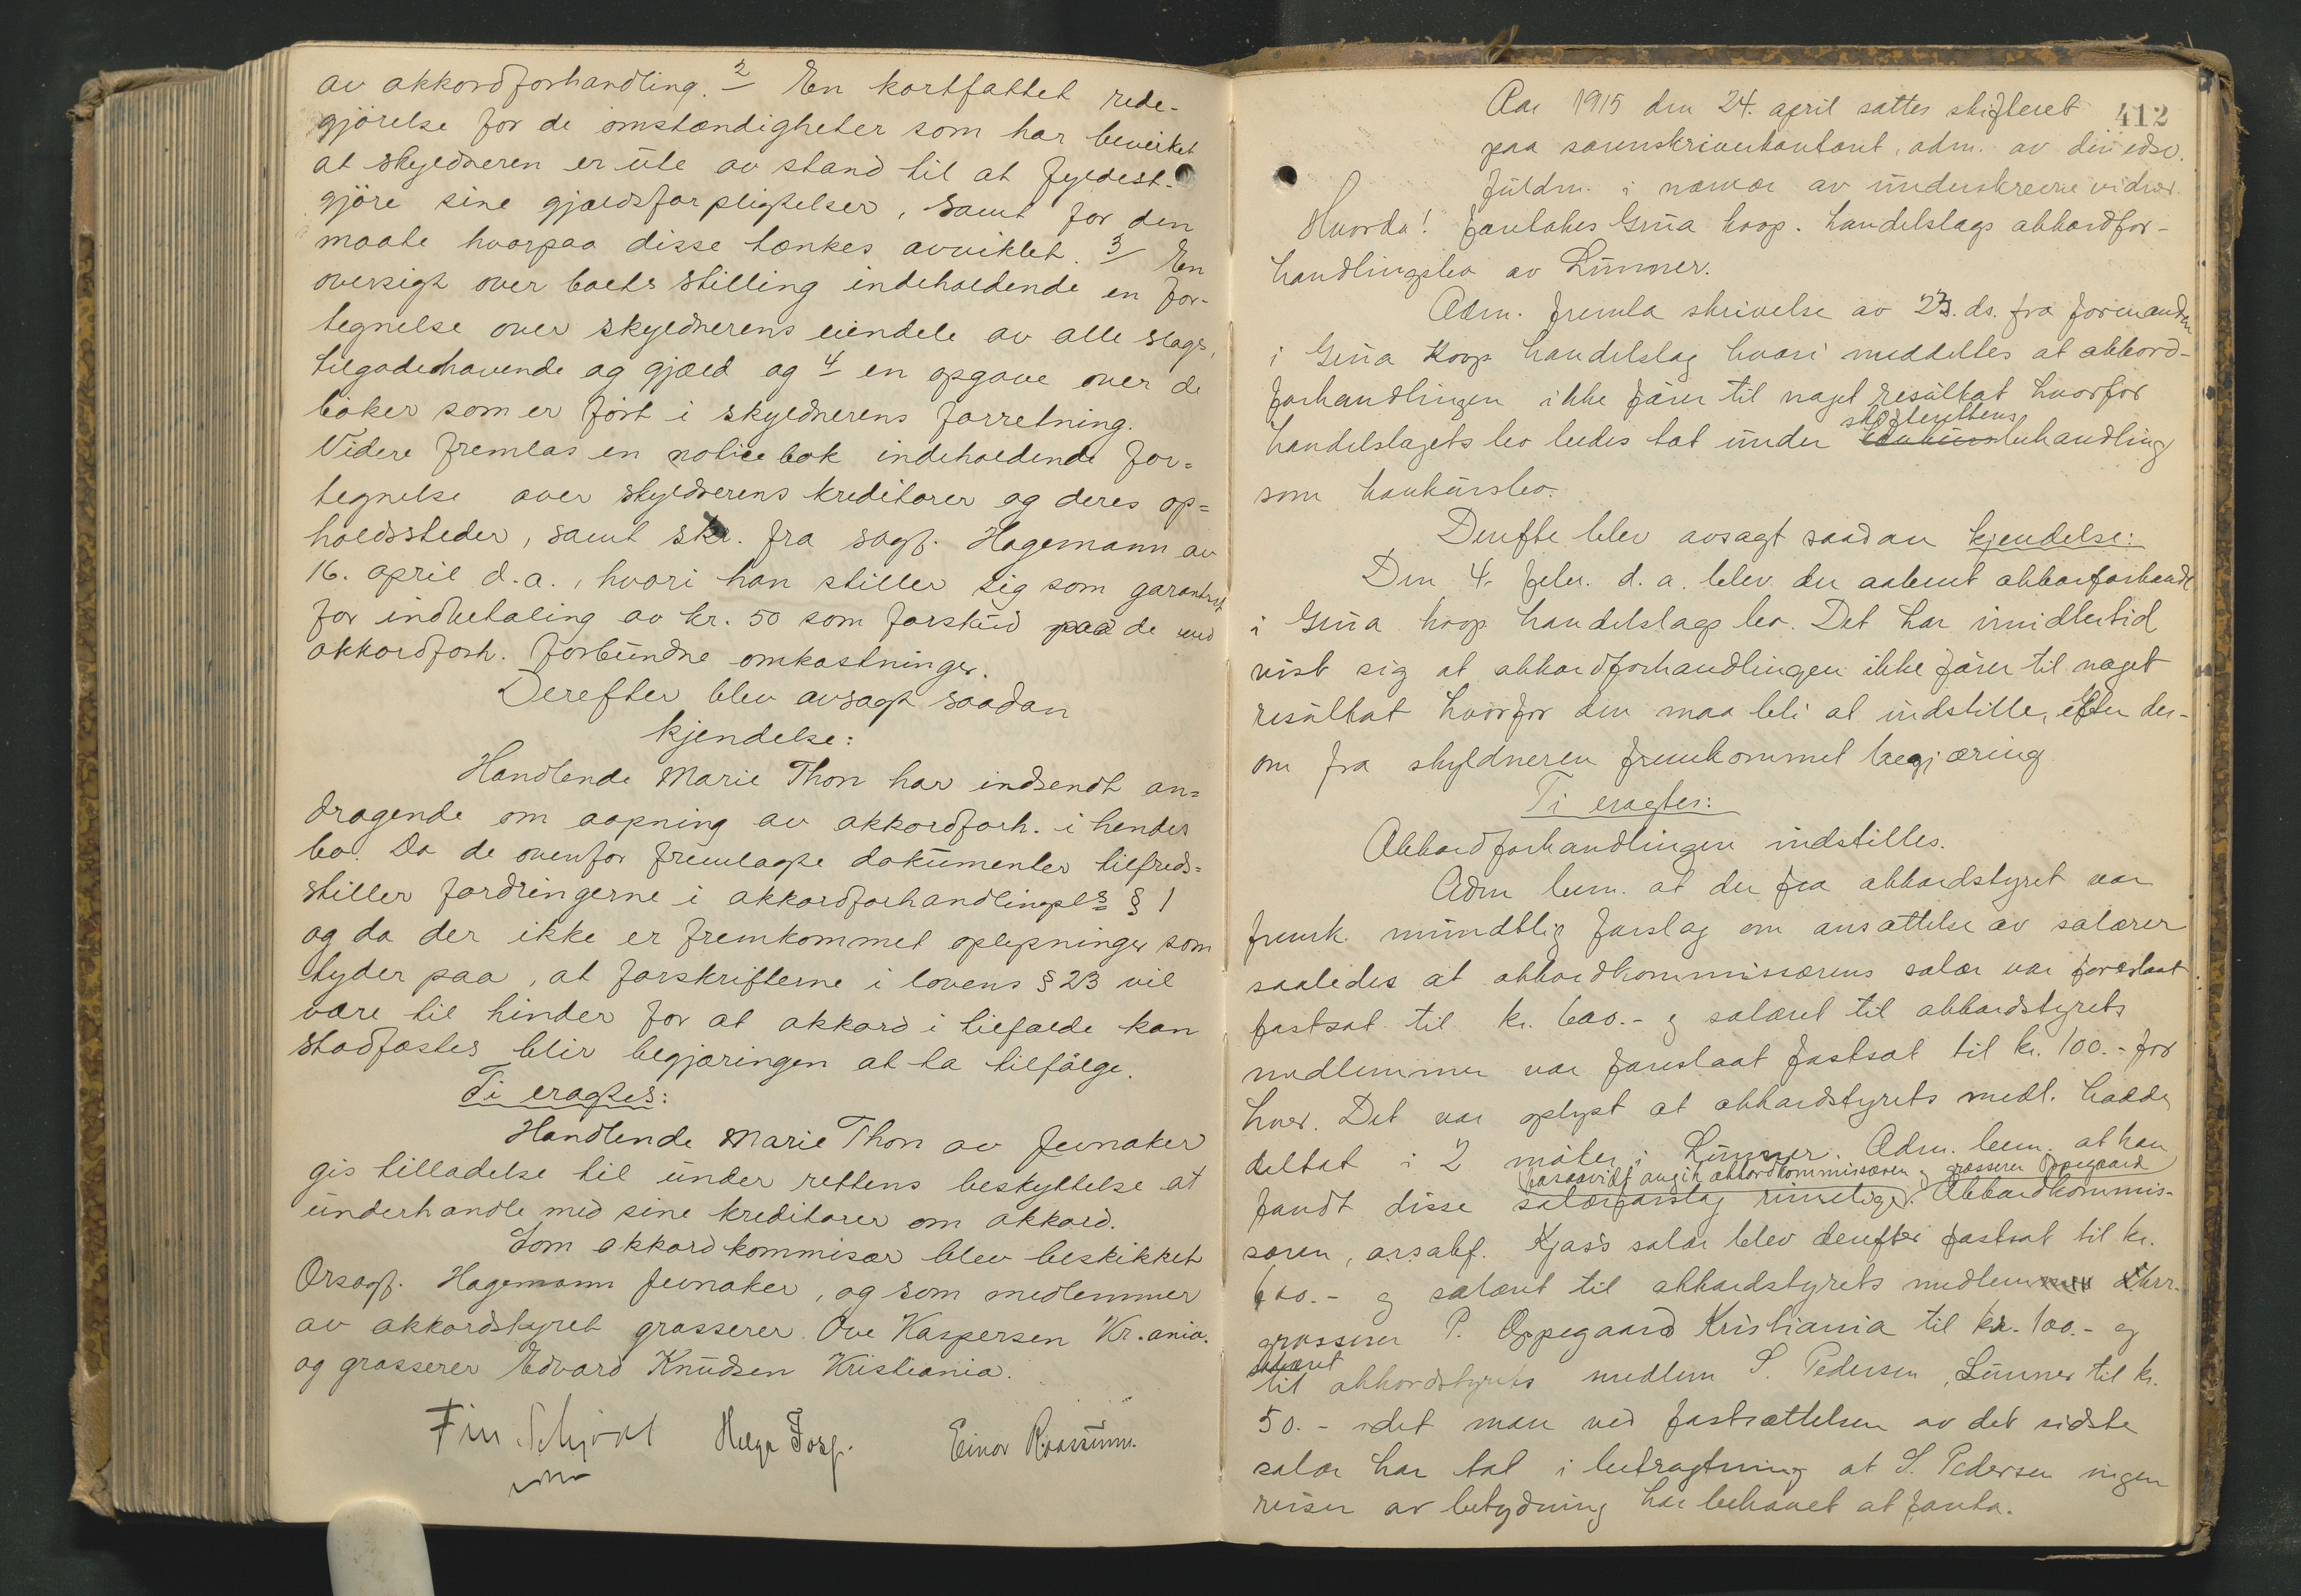 av akkordforhandling. 2/ En kortfattet rede-
gjörelse for de omstændigheter som har bevirket
at skyldneren er ute av stand til at fyldest-
gjöre sine gjældsforpligtelser, samt for den
maate hvorpaa disse tænkes avviklet. 3/ En
oversigt over boets stilling indeholdende en for-
tegnelse over skyldnerens eiendele av alle slags,
tilgodehavende og gjæld og 4/ en opgave over de
böker som er fört i skyldnerens forretning.
Videre fremlas en notice bok indeholdende for=
tegnelse over skyldnerens kreditorer og deres op=
holdssteder, samt skr. fra sagf. Hagemann av
16. april d.a., hvori han stiller sig som garantist
for indbetaling av kr. 50 som forskud paa de med
akkordforh. forbundne omkostninger.
Derefter blev avsagt saadan
kjendelse:
Handlende Marie Thon har indsendt an=
dragende om aapning av akkordforh. i hendes
bo. Da de ovenfor fremlagte dokumenter tilfreds=
stiller fordringerne i akkordforhandlingsls § 1
og da der ikke er fremkommet oplysninger som
tyder paa, at forskrifterne i lovens § 23 vil
være til hinder for at akkord i tilfælde kan
stadfæstes blir begjæringen at ta tilfölge.
Ti eragtes:
Handlende Marie Thon av Jevnaker
gis tilladelse til under rettens beskyttelse at
underhandle med sine kreditorer om akkord.
Som akkordkommisær blev beskikket
Orsagf. Hagemann Jevnaker, og som medlemmer
av akkordstyret grosserer Ove Kaspersen Kr.ania.
og grosserer Edvard Knudsen Kristiania.
Fin. Schjödt Helga Einar
412
Aar 1915 den 24. april sattes skifteret
paa sorenskriverkontoret, adm. av edsv.
fuldm. i nærvær av underskrevne vidner.
Hvorda! foretokes Grua koop. handelslags akkordfor-
handlingsbo av Lunner.
Adm. fremla skrivelse av 23. ds. fra formanden
i Grua Koop handelslag hvori meddeltes at akkord-
forhandlingen ikke förer til noget resultat hvorfor
skifterettens
handelslagets bo bedes tat under konkursbehandling
som konkursbo.
Derefter blev avsagt saadan kjendelse:
Den 4. febr. d.a. blev der aabent akkordforhandl
i Grua koop handelslags bo. Det har imidlertid
vist sig at akkordforhandlingen ikke förer til noget
resultat hvorfor den maa bli at indstille, efter der-
om fra skyldneren fremkommet begjæring
Ti eragtes:
Akkordforhandlingen indstilles.
Adm bem. at der fra akkordstyret var
fremk. mundtlig forslag om ansættelse av salærer
saaledes at akkordkommissærens salær var foreslaat
fastsat til kr. 600.- og salæret til akkordstyrets
medlemmer var foreslaat fastsat til kr. 100.- for
hver. Det var oplyst at akkordstyrets medl. hadde
deltat i 2 möter i Lunner. Adm. bem. at han
forsaavidt angik akkordkommissæren og grosserer Oppegaard
fandt disse salærforslag rimelige. Akkordkommis-
særen, o.r.sakf. Kjos's salær blev derefter fastsat til kr.
600.- og salæret til akkordstyrets medlem
grosserer P. Oppegaard Kristiania til kr. 100.- og
salæret
til akkordstyrets medlem S. Pedersen, Lunner til kr.
50.- idet man ved fastsættelsen av det sidste
salær har tat i betragtning at S. Pedersen ingen
reiser av betydning har behövet at foreta.